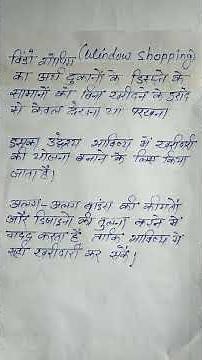 विंडो शॉपिंग (Window Shopping)
का अर्थ दुकानों के डिस्प्ले के
सामानों को बिना खरीदने के इरादे
से केवल देखना या परखना
इसका उद्देश्य भविष्य में खरीदारी
की योजना बनाने के लिए किया
जाता है।
अलग-अलग ब्रांड्स की कीमतों
और डिजाइनों की तुलना करने में
मदद करता है, ताकि भविष्य में
सही खरीदारी कर सकें।